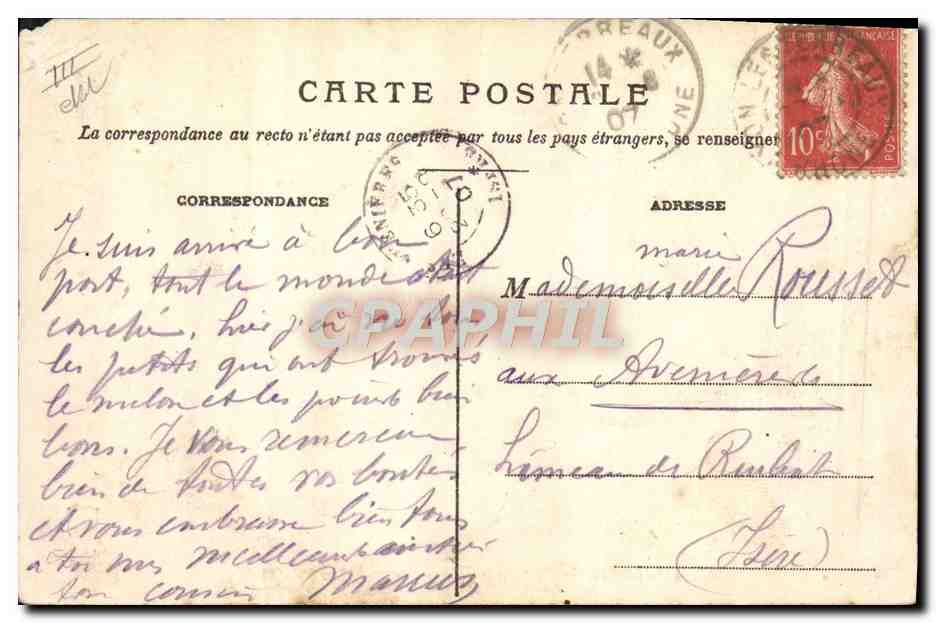 III
CARTE POSTALE
La correspondance au recto n'étant pas acceptée par tous les pays étrangers, se renseigner
CORRESPONDANCE
Je suis arrivé à bon
port, tout le monde était
couché, hier j'ai vu tous
les petits qui ont trouvés
le melon et les poires bien
bons. Je vous remercie
bien de toutes vos bontés
et vous embrasse bien tous
a toi mes meilleures
ton cousin Marius
ADRESSE
marie
Mademoiselle Rousset
aux Avenières
hameau de
(Isère)
REPUBLIQUE FRANÇAISE
10c
POSTES
14
07
AVENIÈRES
ISÈRE
07
CPAPHIL